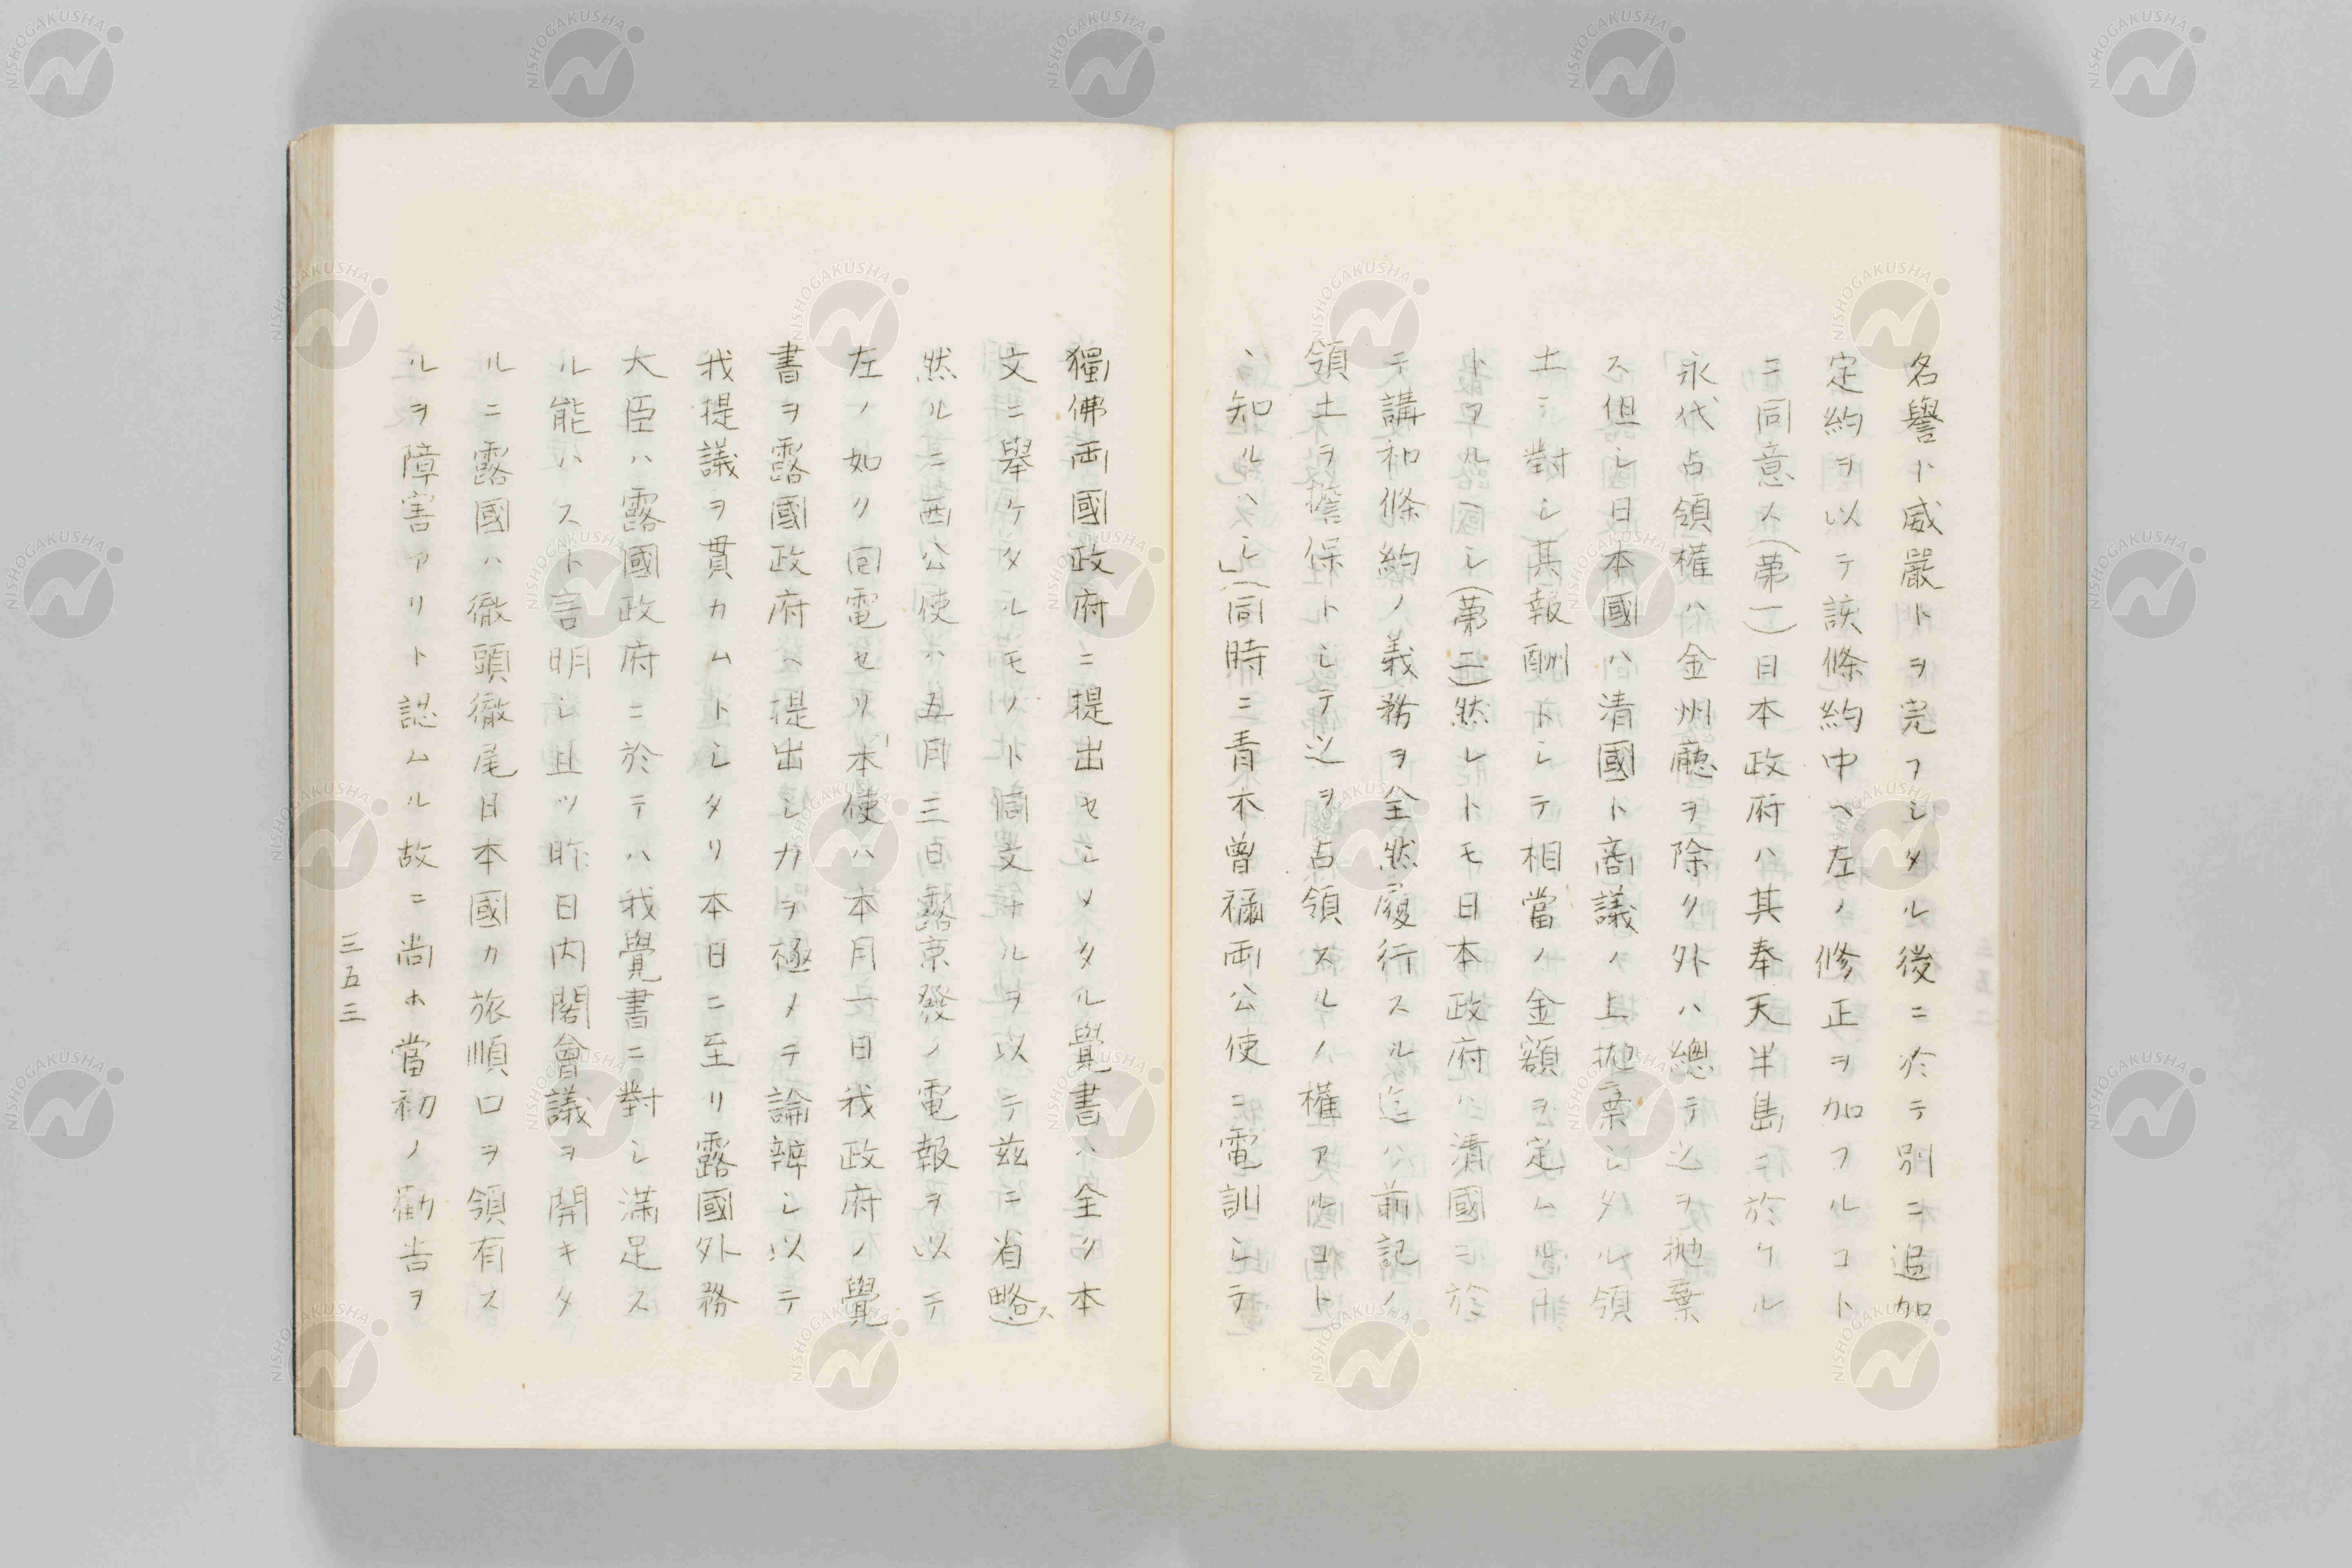 名譽ト威嚴トヲ完フシタル後ニ於テ別ニ追加
定約ヲ以テ該條約中ヘ左ノ修正ヲ加フルコト
ニ同意ス(第一)日本政府ハ其奉天半島ニ於ケル
永代占領權ハ金州廳ヲ除ク外ハ總テ之ヲ拋棄
ス但シ日本國ハ清國ト商議ノ上拋棄シタル領
土ニ對シ其報酬トシテ相當ノ金額ヲ定ムル
トアルヘシ(第二)然レトモ日本政府ハ清國ニ於
テ講和條約ノ義務ヲ全然履行スル迄ハ前記ノ
領土ヲ擔保トシテ之ヲ占領スルノ權アルコト
ヽ知ルヘシ」(同時ニ青木曾禰両公使ニ電訓シテ
獨佛両國政府ニ提出セシメタル覺書ハ全ク本
文ニ舉ケタルモノト同文ナルヲ以テ茲ニ省略ス)
然ルニ西公使ハ五月三日露京發ノ電報ヲ以テ
左ノ如ク回電セリ「本使ハ本月一日我政府ノ覺
書ヲ露國政府ヘ提出シ力ヲ極メテ論辨シ以テ
我提議ヲ貫カムトシタリ本日ニ至リ露國外務
大臣ハ露國政府ニ於テハ我覺書ニ對シ滿足ス
ル能ハスト言明シ且ツ昨日内閣會議ヲ開キタ
ルニ露國ハ徹頭徹尾日本國カ旅順口ヲ領有ス
ルヲ障害アリト認ムル故ニ尚ホ當初ノ勸告ヲ
三五三
NISHOGAKUSHA